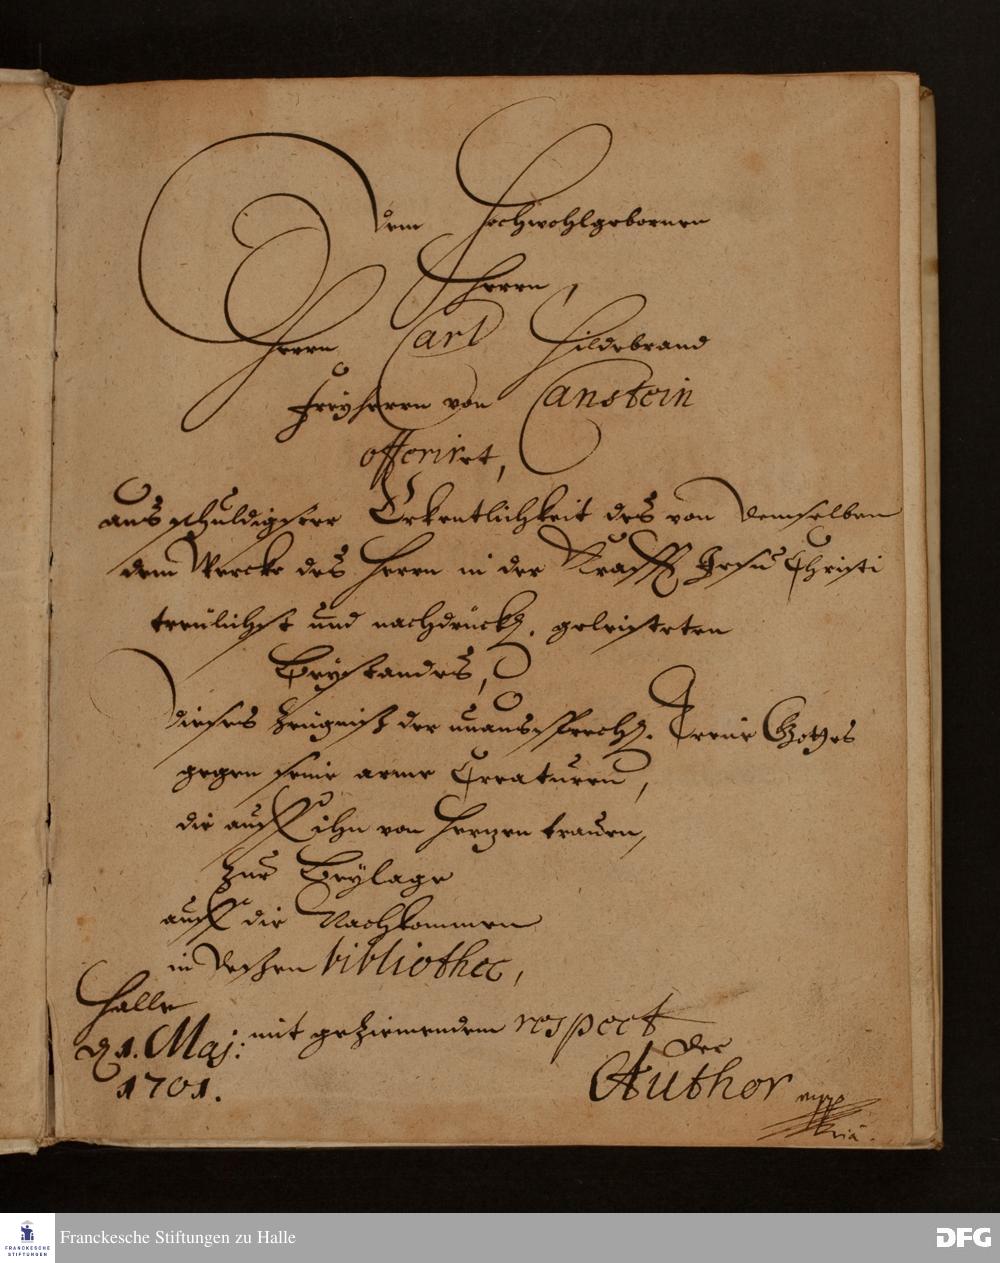 Dem Hochwohlgebornen
Herrn,
Herrn Carl Hildebrand
Freyherrn von Canstein
offeriret,
aus schuldigster Erkentlichkeit des von demselben
dem Wercke des Herrn in der Krafft Jesu Christi
treülichst und nachdrückl. geleisteten
Beystandes,
dieses Zeügniß der unaussprechl. Treüe Gottes
gegen seine arme Creaturen,
die auff ihn von Hertzen trauen,
zur Beylage
auff die Nachkommen
in dessen bibliothec,
Halle
d. 1. Maj:
1701.
mit geziemendem respect
der
Author mppria.
Franckesche Stiftungen zu Halle
FRANCKESCHE
STIFTUNGEN
DFG